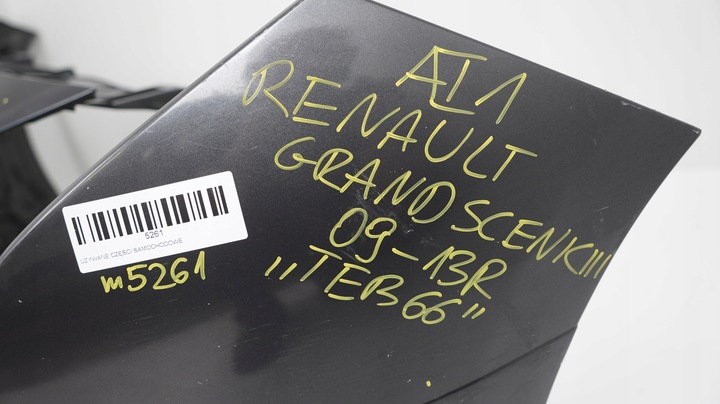 AI1
RENAULT
GRAND SCENIC III
09-13R
„TEB66”
5261
UŻYWANE CZĘŚCI SAMOCHODOWE
m5261